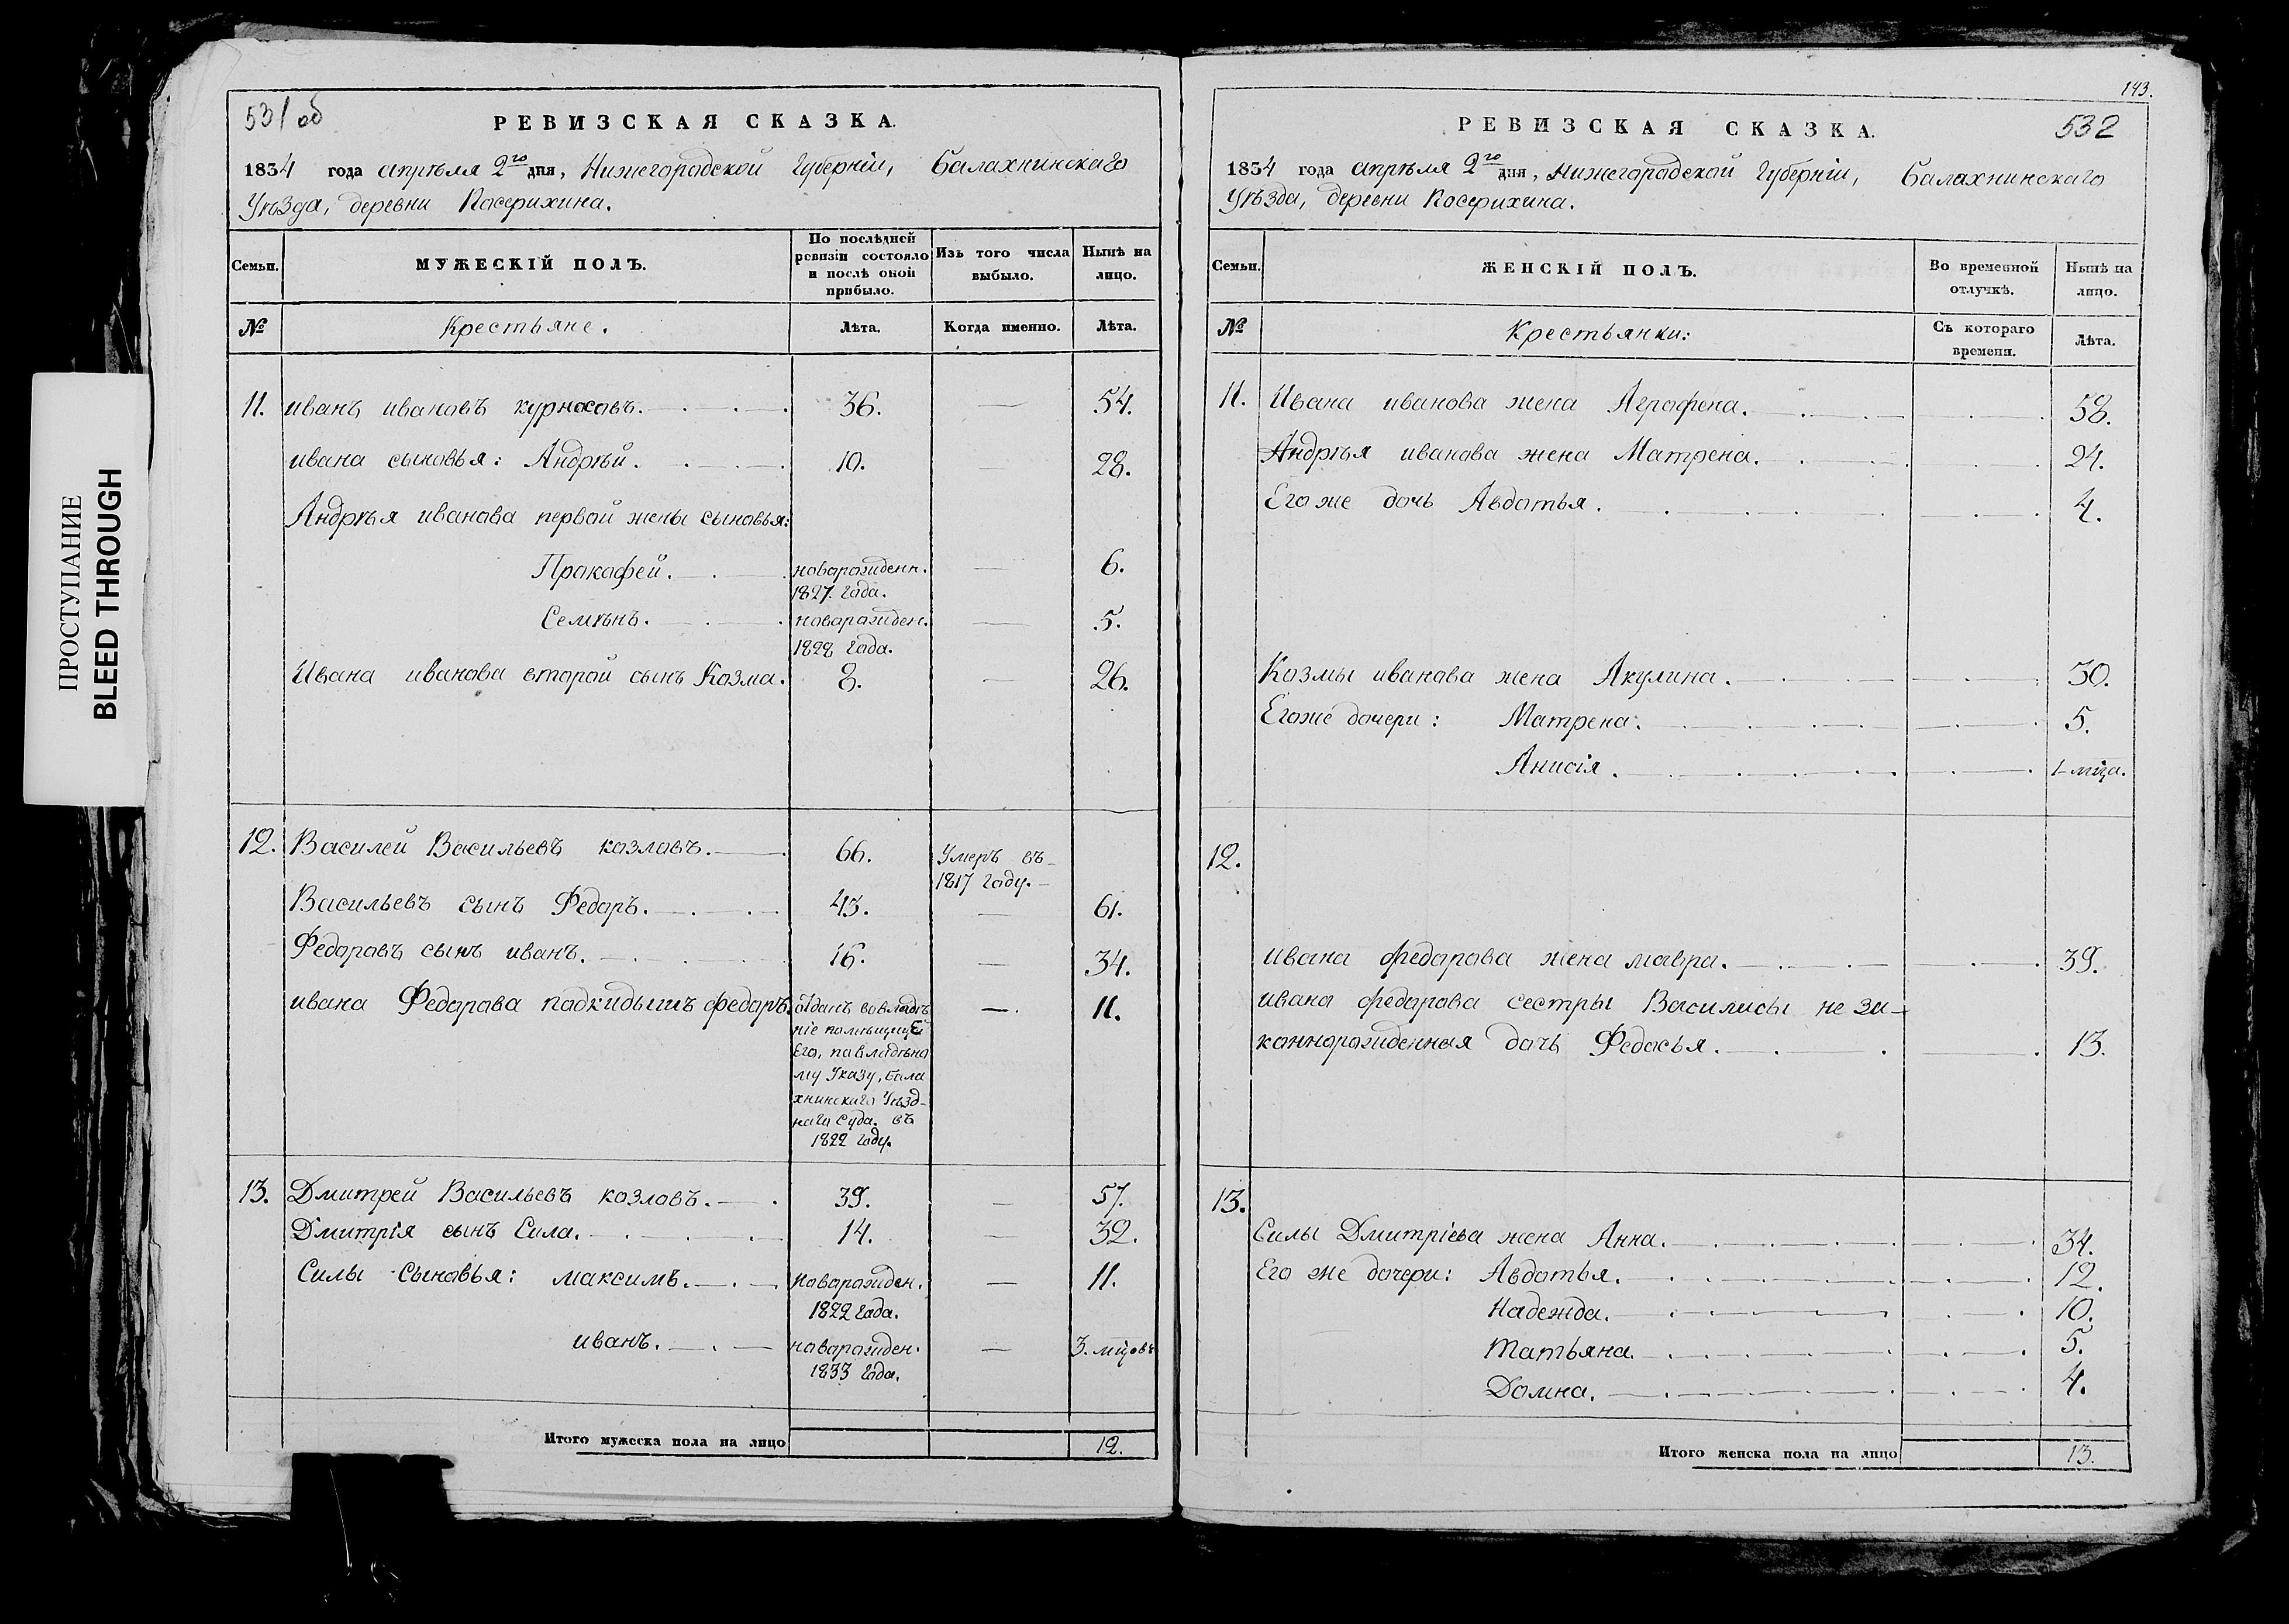 ПРОСТУПАНИЕ
BLEED THROUGH
531 об
РЕВИЗСКАЯ СКАЗКА.
1834 года апрѣля 2го дня, Нижегородской Губернiи, Балахнинскаго
Уѣзда, деревни
Семьи.
МУЖЕСКIЙ ПОЛЪ.
По послѣдней ревизiи состояло и послѣ оной прибыло.
Изъ того числа выбыло.
Нынѣ на лицо.
№
Крестьяне.
Лѣта.
Когда именно.
Лѣта.
11. иванъ ивановъ курносовъ. 36. — 54.
ивана сыновья: Андрѣй. 10. — 28.
Андрѣя иванова первой жены сыновья:
Прокофей. новорожденн. — 6.
1827. года.
Семѣнъ. новорожден. — 5.
1828 года.
Ивана иванова второй сынъ Козма. 8. — 26.
12. Василей Васильевъ козловъ. 66. Умеръ въ
1817 году.
Васильевъ сынъ Федоръ. 43. — 61.
Федоровъ сынъ иванъ. 16. — 34.
ивана Федорова подкидышъ федоръ. отданъ вовладѣ — 11.
нiе помѣщицы
Его, по
му Указу, Бала
хнинскаго Уѣзд
наго Суда. въ
1822 году.
13. Дмитрей Васильевъ козловъ. 39. — 57.
Дмитрiя сынъ Сила. 14. — 32.
Силы сыновья: максимъ. новорожден. — 11.
1822 года.
иванъ. новорожден. — 3. мцовъ
1833 года.
Итого мужеска пола на лицо 12.
143.
532
РЕВИЗСКАЯ СКАЗКА.
1834 года апрѣля 2го дня, Нижегородской Губернiи, Балахнинскаго
Уѣзда, деревни
Семьи.
ЖЕНСКIЙ ПОЛЪ.
Во временной отлучкѣ.
Нынѣ на лицо.
№
Крестьянки:
Съ котораго времени.
Лѣта.
11. Ивана иванова жена Аграфена. 58.
Андрѣя иванова жена Матрена. 24.
Его же дочь Авдотья. 4.
Козмы иванова жена Акулина. 30.
Егоже дочери: Матрена. 5.
Анисiя. 1 мца.
12.
ивана федорова жена мавра. 39.
ивана федорова сестры Василисы не за-
коннорожденная дочь Федосья. 13.
13.
Силы Дмитрiева жена Анна. 34.
Его же дочери: Авдотья. 12.
Надежда. 10.
Татьяна. 5.
Домна. 4.
Итого женска пола на лицо 13.